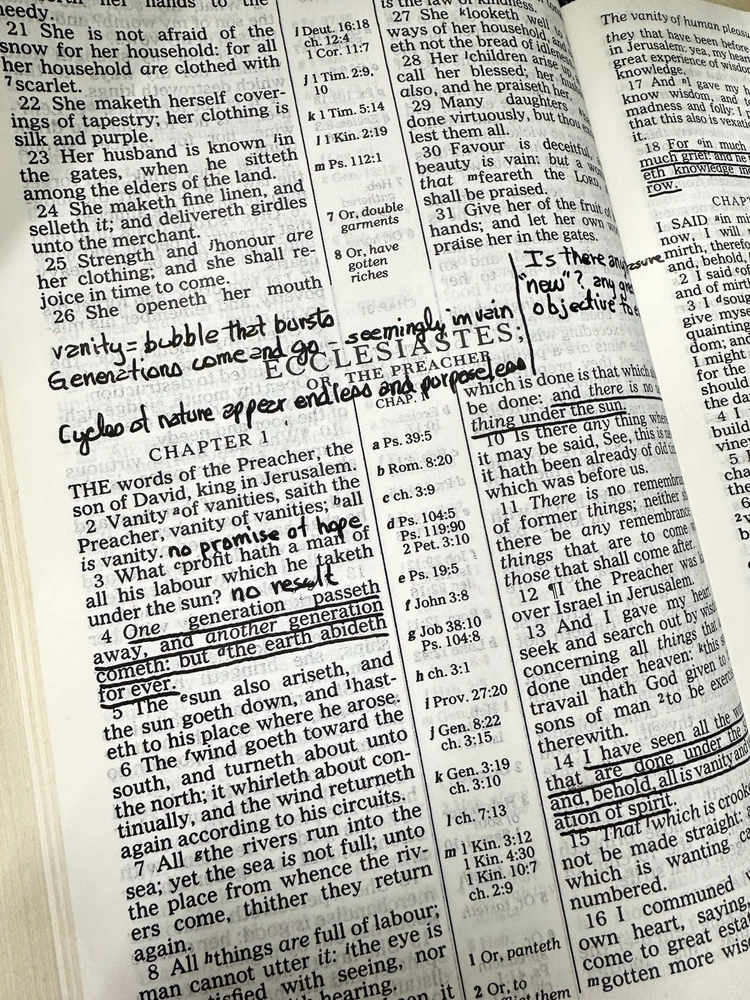 needy.
21 She is not afraid of the
snow for her household: for all
her household are clothed with
7 scarlet.
22 She maketh herself cover-
ings of tapestry; her clothing is
silk and purple.
23 Her husband is known lin
the gates, when he sitteth
among the elders of the land.
24 She maketh fine linen, and
selleth it; and delivereth girdles
unto the merchant.
25 Strength and honour are
her clothing; and she shall re-
joice in time to come.
26 She openeth her mouth
i Deut. 16:18
ch. 12:4
1 Cor. 11:7
j 1 Tim. 2:9,
10
k 1 Tim. 5:14
l 1 Kin. 2:19
m Ps. 112:1
7 Or, double
garments
8 Or, have
gotten
riches
is the law of kindness,
27 She klooketh well to
ways of her household, and
eteth not the bread of idleness
28 Her children arise up,
call her blessed; her
also, and he praiseth her.
29 Many daughters
done virtuously, but thou
lest them all.
30 Favour is deceitful,
beauty is vain: but a
that mfeareth the LORD,
shall be praised.
31 Give her of the fruit of
hands; and let her own
praise her in the gates.
vanity = bubble that bursts
Generations come and go - seemingly in vain
Cycles of nature appear endless and purposeless
Is there any
"new"? any
objective to
ECCLESIASTES;
OR, THE PREACHER
CHAP. 1
CHAPTER 1
THE words of the Preacher, the
son of David, king in Jerusalem.
2 Vanity aof vanities, saith the
Preacher, vanity of vanities; ball
is vanity. no promise of hope
3 What cprofit hath a man of
all his labour which he taketh
under the sun? no result
4 One generation passeth
away, and another generation
cometh: but dthe earth abideth
for ever.
5 The esun also ariseth, and
the sun goeth down, and hast-
eth to his place where he arose.
6 The fwind goeth toward the
south, and turneth about unto
the north; it whirleth about con-
tinually, and the wind returneth
again according to his circuits.
7 All gthe rivers run into the
sea; yet the sea is not full; unto
the place from whence the riv-
ers come, thither they return
again.
8 All hthings are full of labour;
man cannot utter it: ithe eye is
satisfied with seeing, nor
hearing.
a Ps. 39:5
b Rom. 8:20
c ch. 3:9
d Ps. 104:5
Ps. 119:90
2 Pet. 3:10
e Ps. 19:5
f John 3:8
g Job 38:10
Ps. 104:8
h ch. 3:1
i Prov. 27:20
j Gen. 8:22
ch. 3:15
k Gen. 3:19
ch. 3:10
l ch. 7:13
m 1 Kin. 3:12
1 Kin. 4:30
1 Kin. 10:7
ch. 2:9
1 Or, panteth
2 Or, to
which is done is that which
be done: and there is no
thing under the sun.
10 Is there any thing where
it may be said, See, this is
it hath been already of old
which was before us.
11 There is no remembrance
of former things; neither
there be any remembrance
things that are to come
those that shall come after.
12 ¶I the Preacher was
over Israel in Jerusalem.
13 And I gave my heart
seek and search out by
concerning all things that
done under heaven: kthis
travail hath God given to
sons of man 2to be
therewith.
14 I have seen all the
that are done under the
and, behold, all is vanity and
ation of spirit.
15 That lwhich is crooked
not be made straight:
which is wanting
numbered.
16 I communed
own heart, saying,
come to great
mgotten more
The vanity of human
they that have been before
in Jerusalem: yea, my heart
great experience of wisdom
knowledge.
17 And I gave my
know wisdom, and
madness and folly: I
that this also is
it.
18 For oin much
much grief: and he
eth knowledge
row.
1 SAID ain
now, I will
mirth, therefore
and, behold,
2 I said
and of mirth
3 I
give
dom; and
I might
for the
should
the
4 I